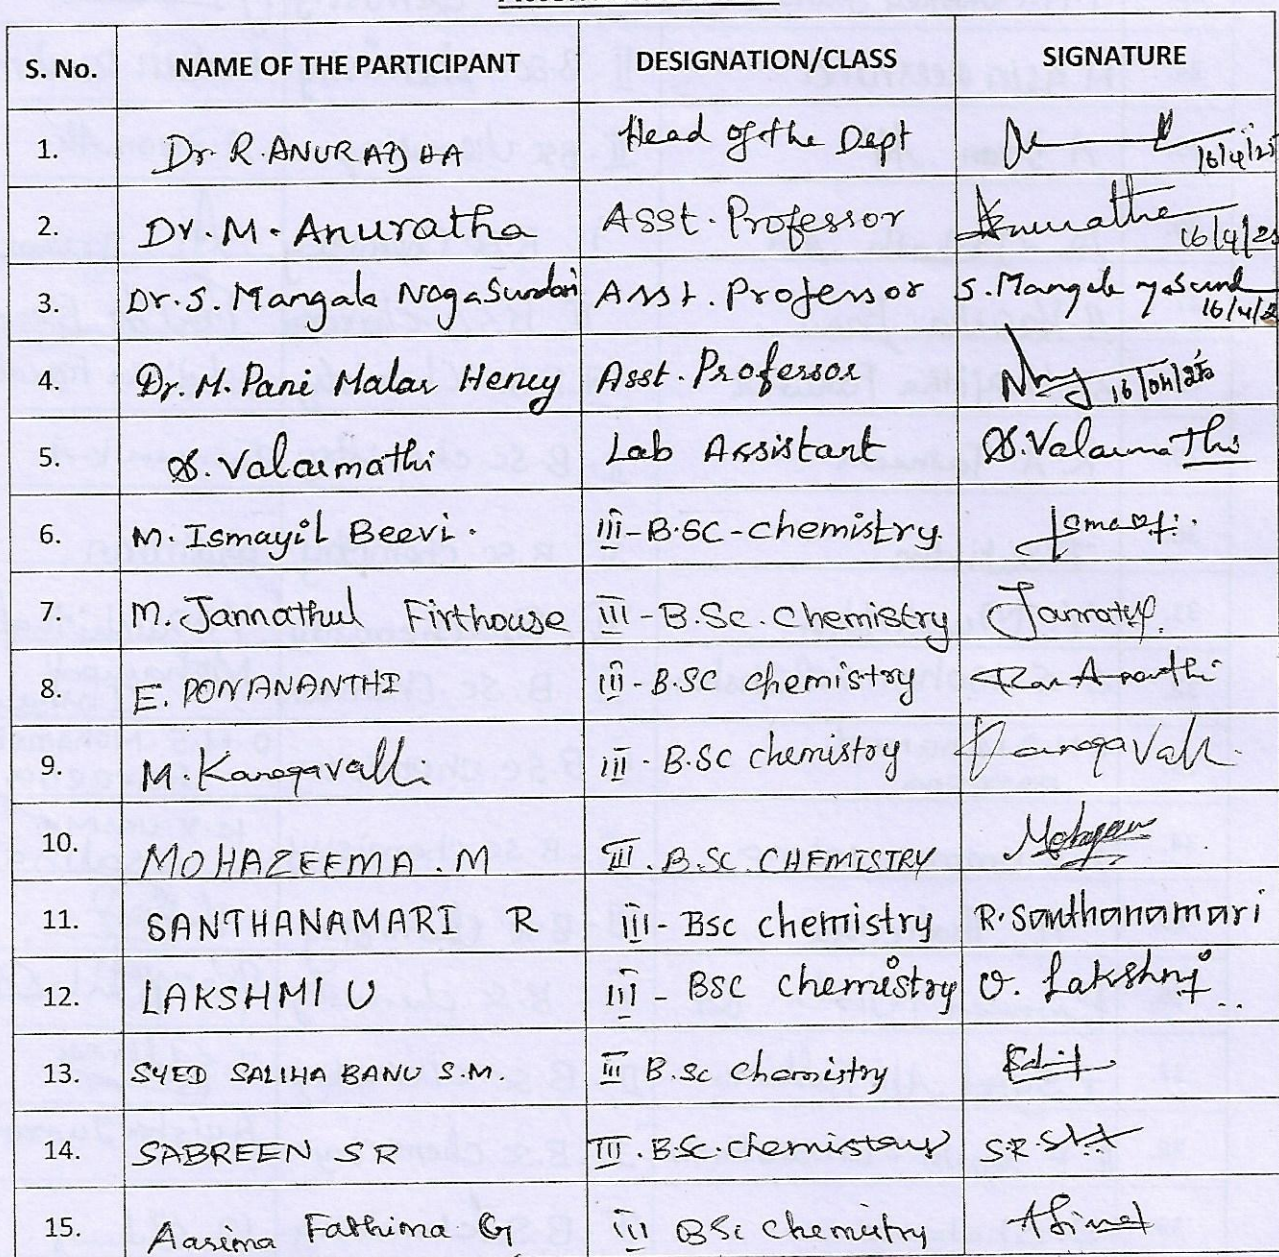 S. No. NAME OF THE PARTICIPANT DESIGNATION/CLASS SIGNATURE
1. Dr R. ANURADHA Head of the Dept 16/4/25
2. Dr. M. Anuratha Asst. Professor Anuratha 16/4/25
3. Dr. S. Mangala Naga Sundari Asst. Professor S. Mangala 16/4/2
4. Dr. M. Pani Malar Hency Asst. Professor 16/04/25
5. S. Valarmathi Lab Assistant S. Valarmathi
6. M. Ismayil Beevi. III-B.SC-chemistry
7. M. Jannathul Firthouse III-B.Sc. Chemistry
8. E. PONANANTHI III-B.SC chemistry
9. M. Kanagavalli III. B.Sc chemistry KanagaValli.
10. MOHAZEEMA. M III. B.SC. CHEMISTRY
11. SANTHANAMARI R III- Bsc chemistry R. Santhanamari
12. LAKSHMI U III - BSC chemistry U. Lakshmi
13. SYED SALIHA BANU S.M. III B.Sc Chemistry
14. SABREEN S R III. B.Sc. chemistry SR
15. Aasima Fathima G III BSc chemistry